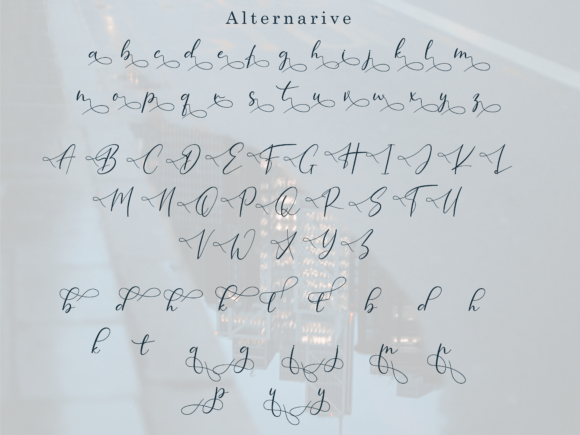 Alternarive
a b c d e f g h i j k l m
n o p q r s t u v w x y z
A B C D E F G H I J K L
M N O P Q R S T U
V W X Y Z
b d h k l t b d h
k t q g f j m p
p y y